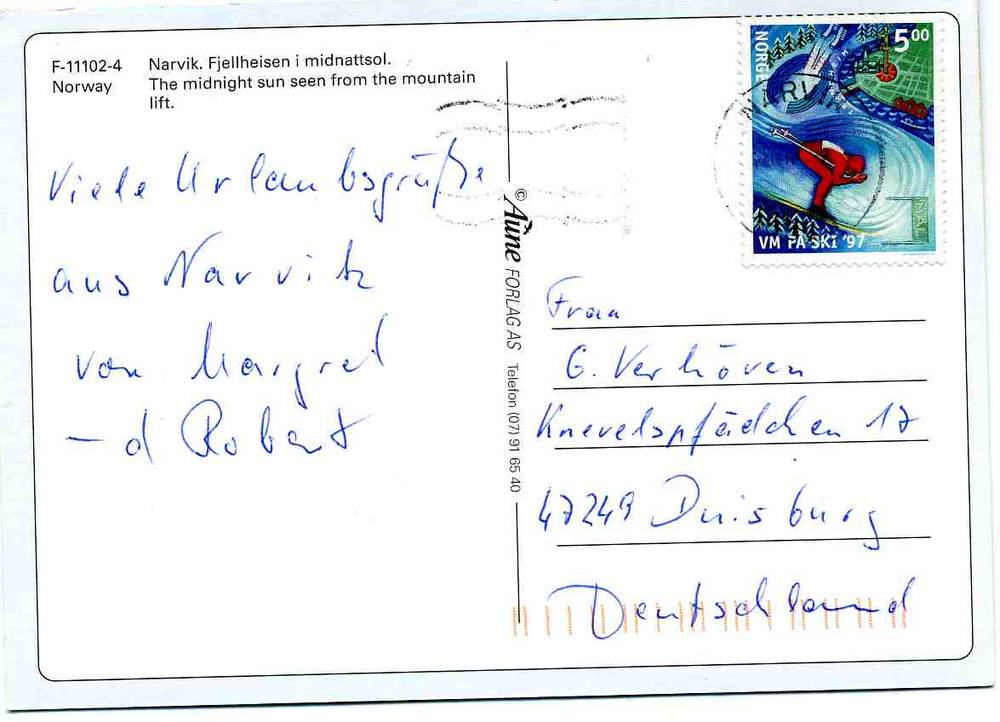 F-11102-4 Narvik. Fjellheisen i midnattsol.
Norway The midnight sun seen from the mountain
lift.
Viele Urlaubsgrüße
aus Narvik
von Margret
– d Robert
© Aune FORLAG AS Telefon (07) 91 65 40
NORGE
500
NARVIK
VM PÅ SKI '97
MÅL
Frau
G. Verhöven
Knevelspfädchen 17
47249 Duisburg
Deutschland